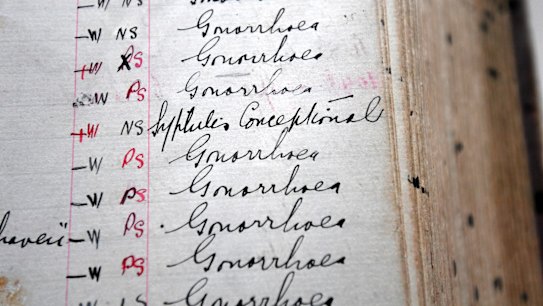 -W NS Gonorrhoea
-W NS Gonorrhoea
+W PS Gonorrhoea
W PS Gonorrhoea
+W NS Syphilis Conceptional
-W PS Gonorrhoea
-W PS Gonorrhoea
-W PS Gonorrhoea
-W PS Gonorrhoea
Gonorrhoea